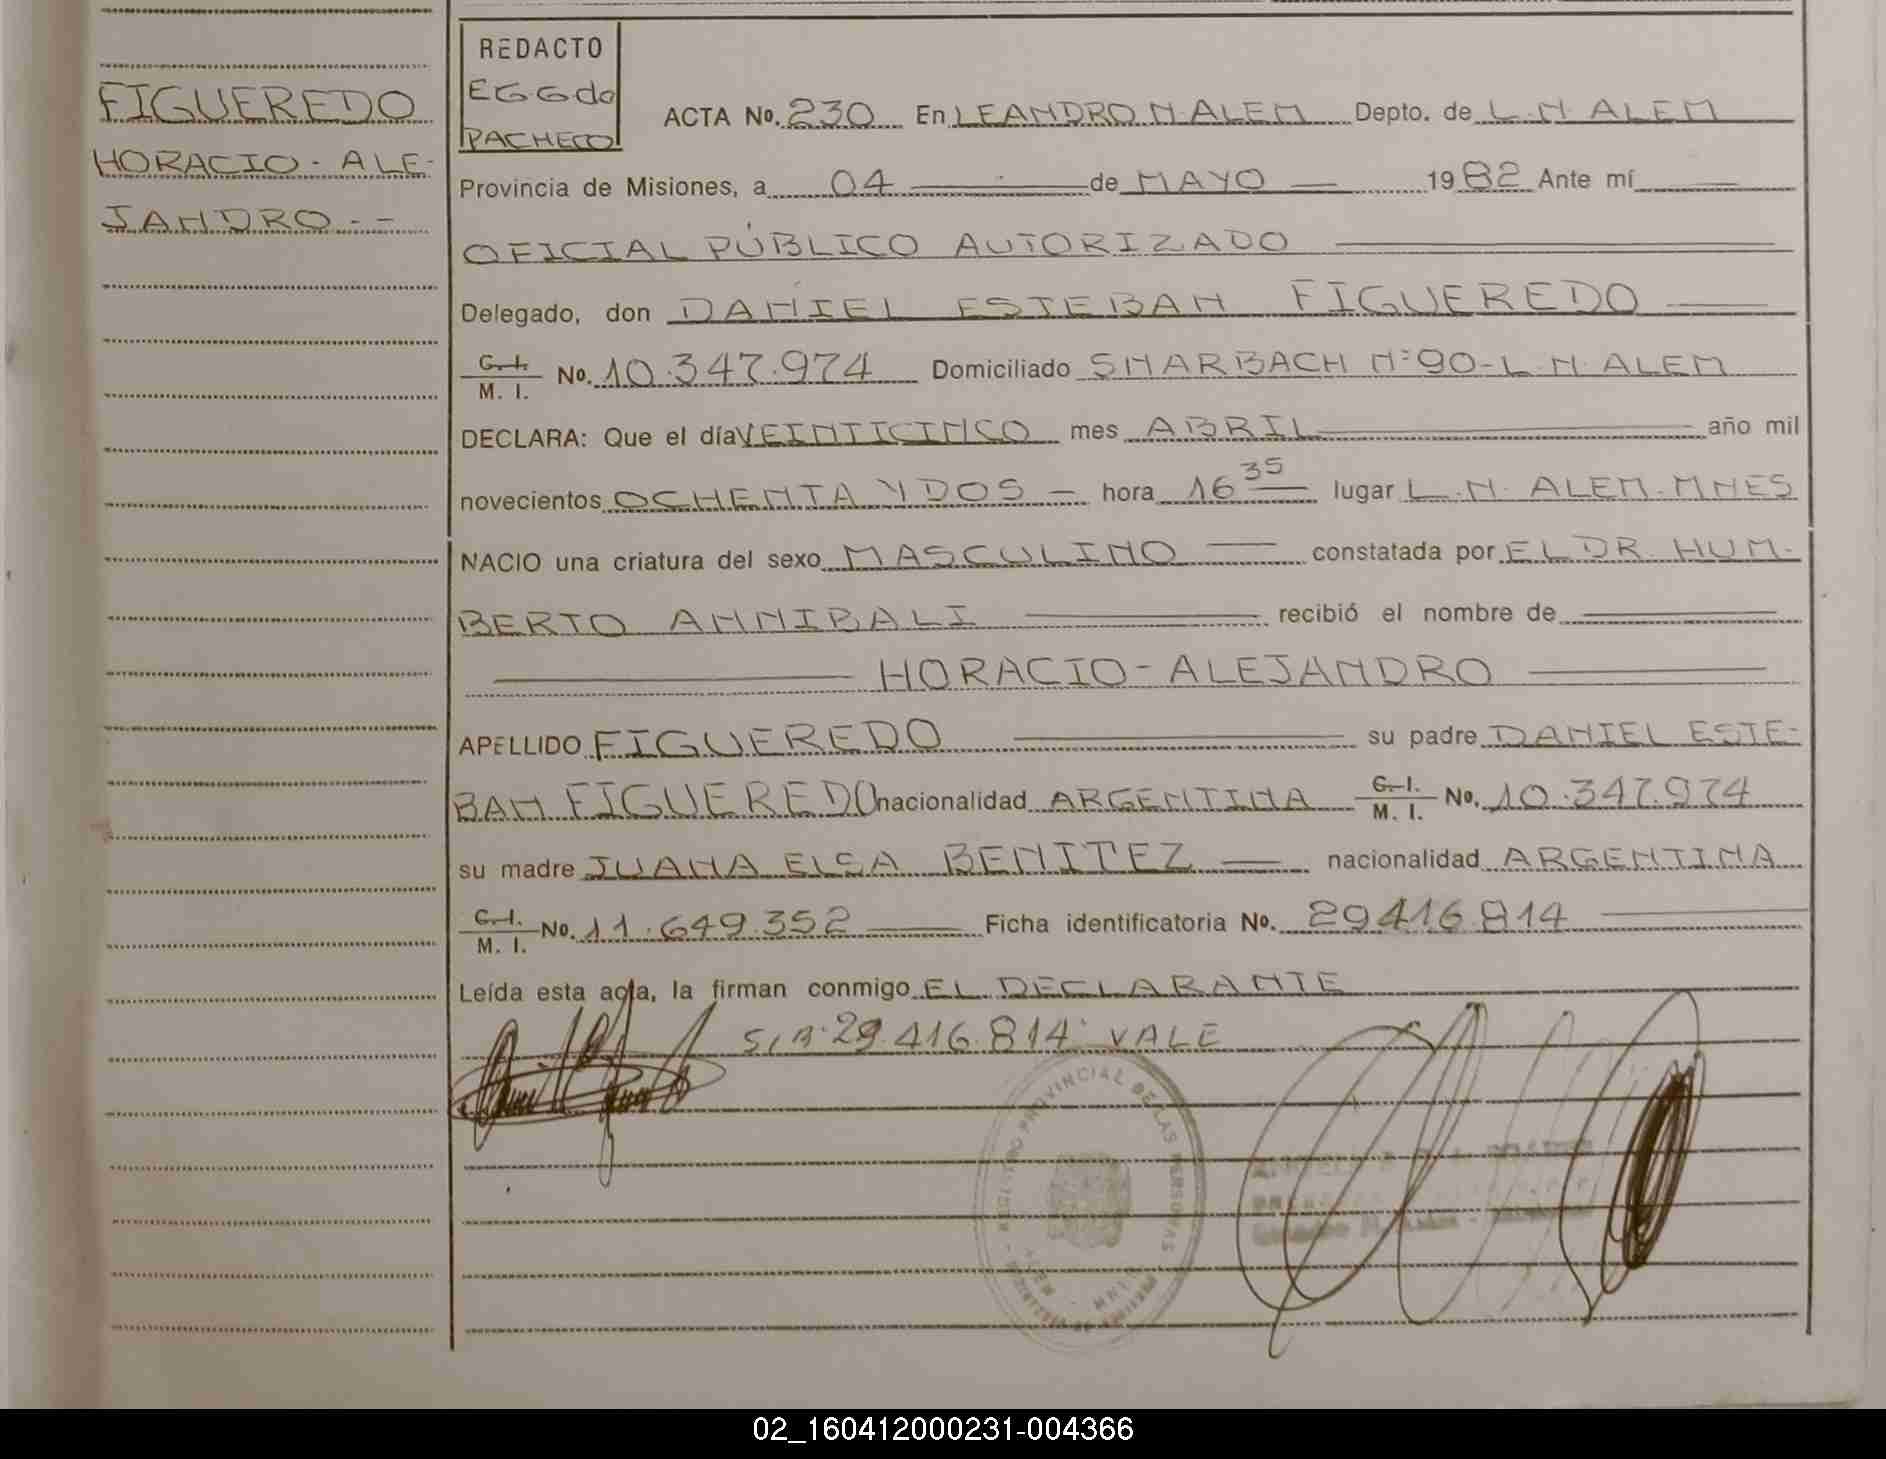 FIGUEREDO
HORACIO - ALE-
JANDRO - -
REDACTO
EGGdo
PACHECO
ACTA No. 230 En LEANDRO N. ALEM Depto. de L. N. ALEM
Provincia de Misiones, a 04 de MAYO 1982 Ante mí
OFICIAL PÚBLICO AUTORIZADO
Delegado, don DANIEL ESTEBAN FIGUEREDO
C. I. / M. I. No. 10.347.974 Domiciliado SMARBACH Nº 90 - L. N. ALEM
DECLARA: Que el día VEINTICINCO mes ABRIL año mil
novecientos OCHENTA Y DOS - hora 16 35 lugar L. N. ALEM. MNES
NACIO una criatura del sexo MASCULINO constatada por EL DR. HUM-
BERTO ANNIBALI recibió el nombre de
HORACIO - ALEJANDRO
APELLIDO FIGUEREDO su padre DANIEL ESTE-
BAN FIGUEREDO nacionalidad ARGENTINA C. I. / M. I. No. 10.347.974
su madre JUANA ELSA BENITEZ nacionalidad ARGENTINA
C. I. / M. I. No. 11.649.352 Ficha identificatoria No. 29416.814
Leída esta acta, la firman conmigo EL DECLARANTE
S/R: 29.416.814: VALE
REGISTRO PROVINCIAL DE LAS PERSONAS
02_160412000231-004366